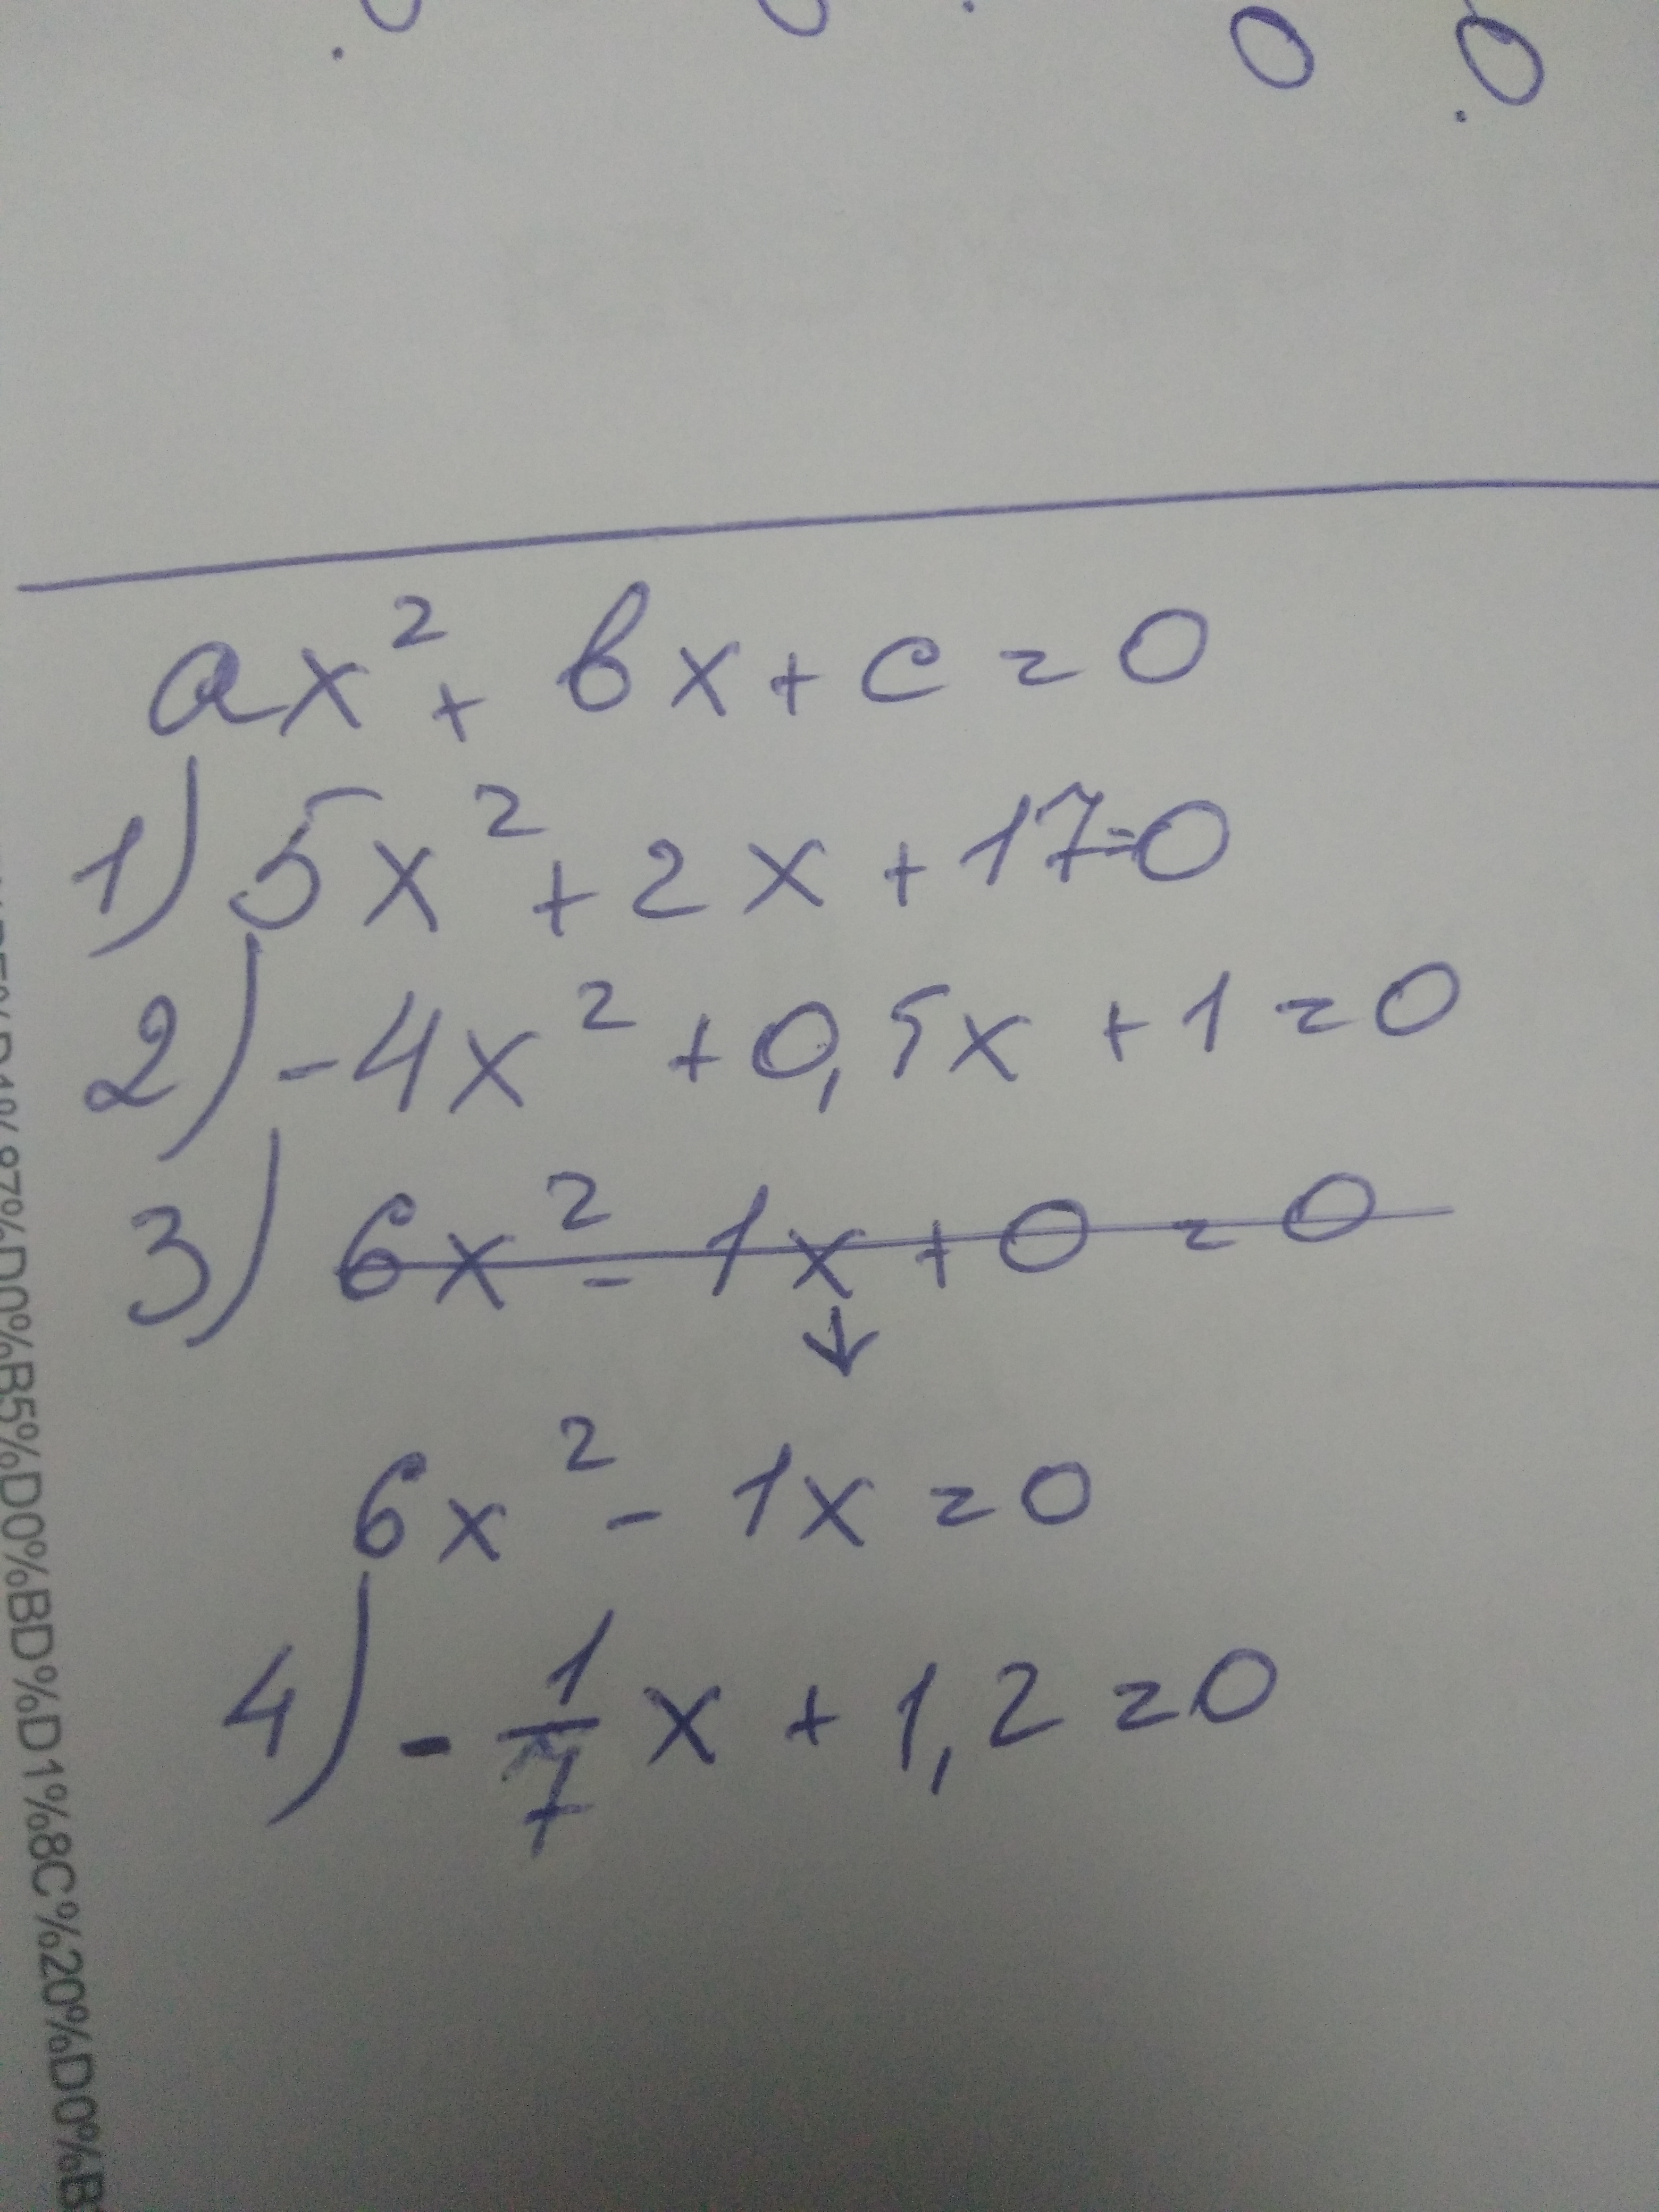 ax² + bx + c = 0
1) 5x² + 2x + 17=0
2) -4x² + 0,5x + 1 = 0
3) 6x² - 1x + 0 = 0
↓
6x² - 1x = 0
4) - 1/7 x + 1,2 = 0
%87%D0%B5%D0%BD%D1%8C%20%D0%B